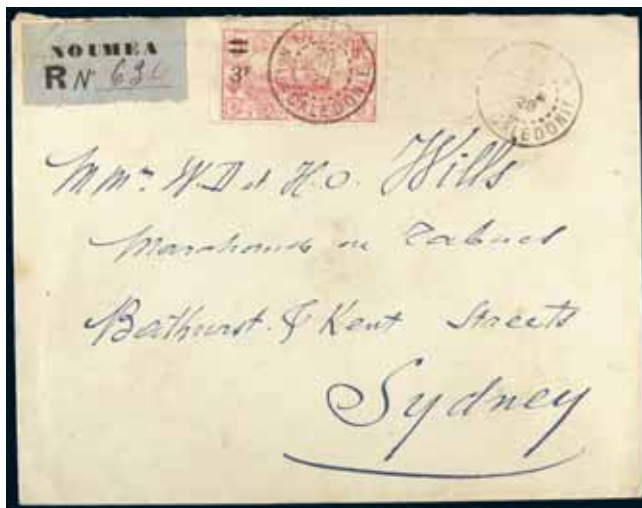 NOUMEA
R Nº 636
3F
CALEDONIE
CALEDONIE
W.D et H.O. Wills
Marchands en Tabacs
Bathurst & Kent Streets
Sydney